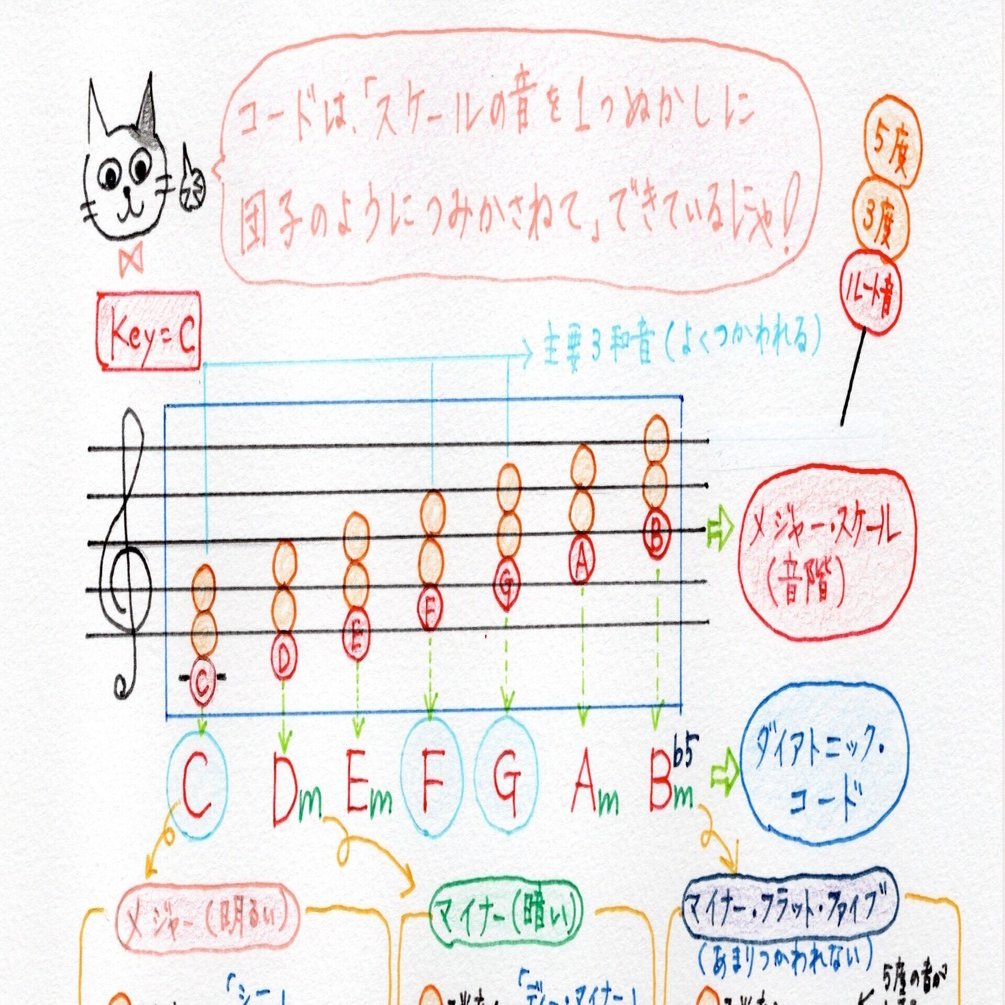 コードは、「スケールの音を1つぬかしに
団子のようにつみかさねて」できているにゃ!
5度
3度
ルート音
Key=C
主要3和音(よくつかわれる)
C
D
E
F
G
A
B
メジャー・スケール
(音階)
C Dm Em F G Am Bm♭5
ダイアトニック・
コード
メジャー(明るい)
マイナー(暗い)
マイナー・フラット・ファイブ
(あまりつかわれない)
「シー」
「ディー・マイナー」
5度の音が